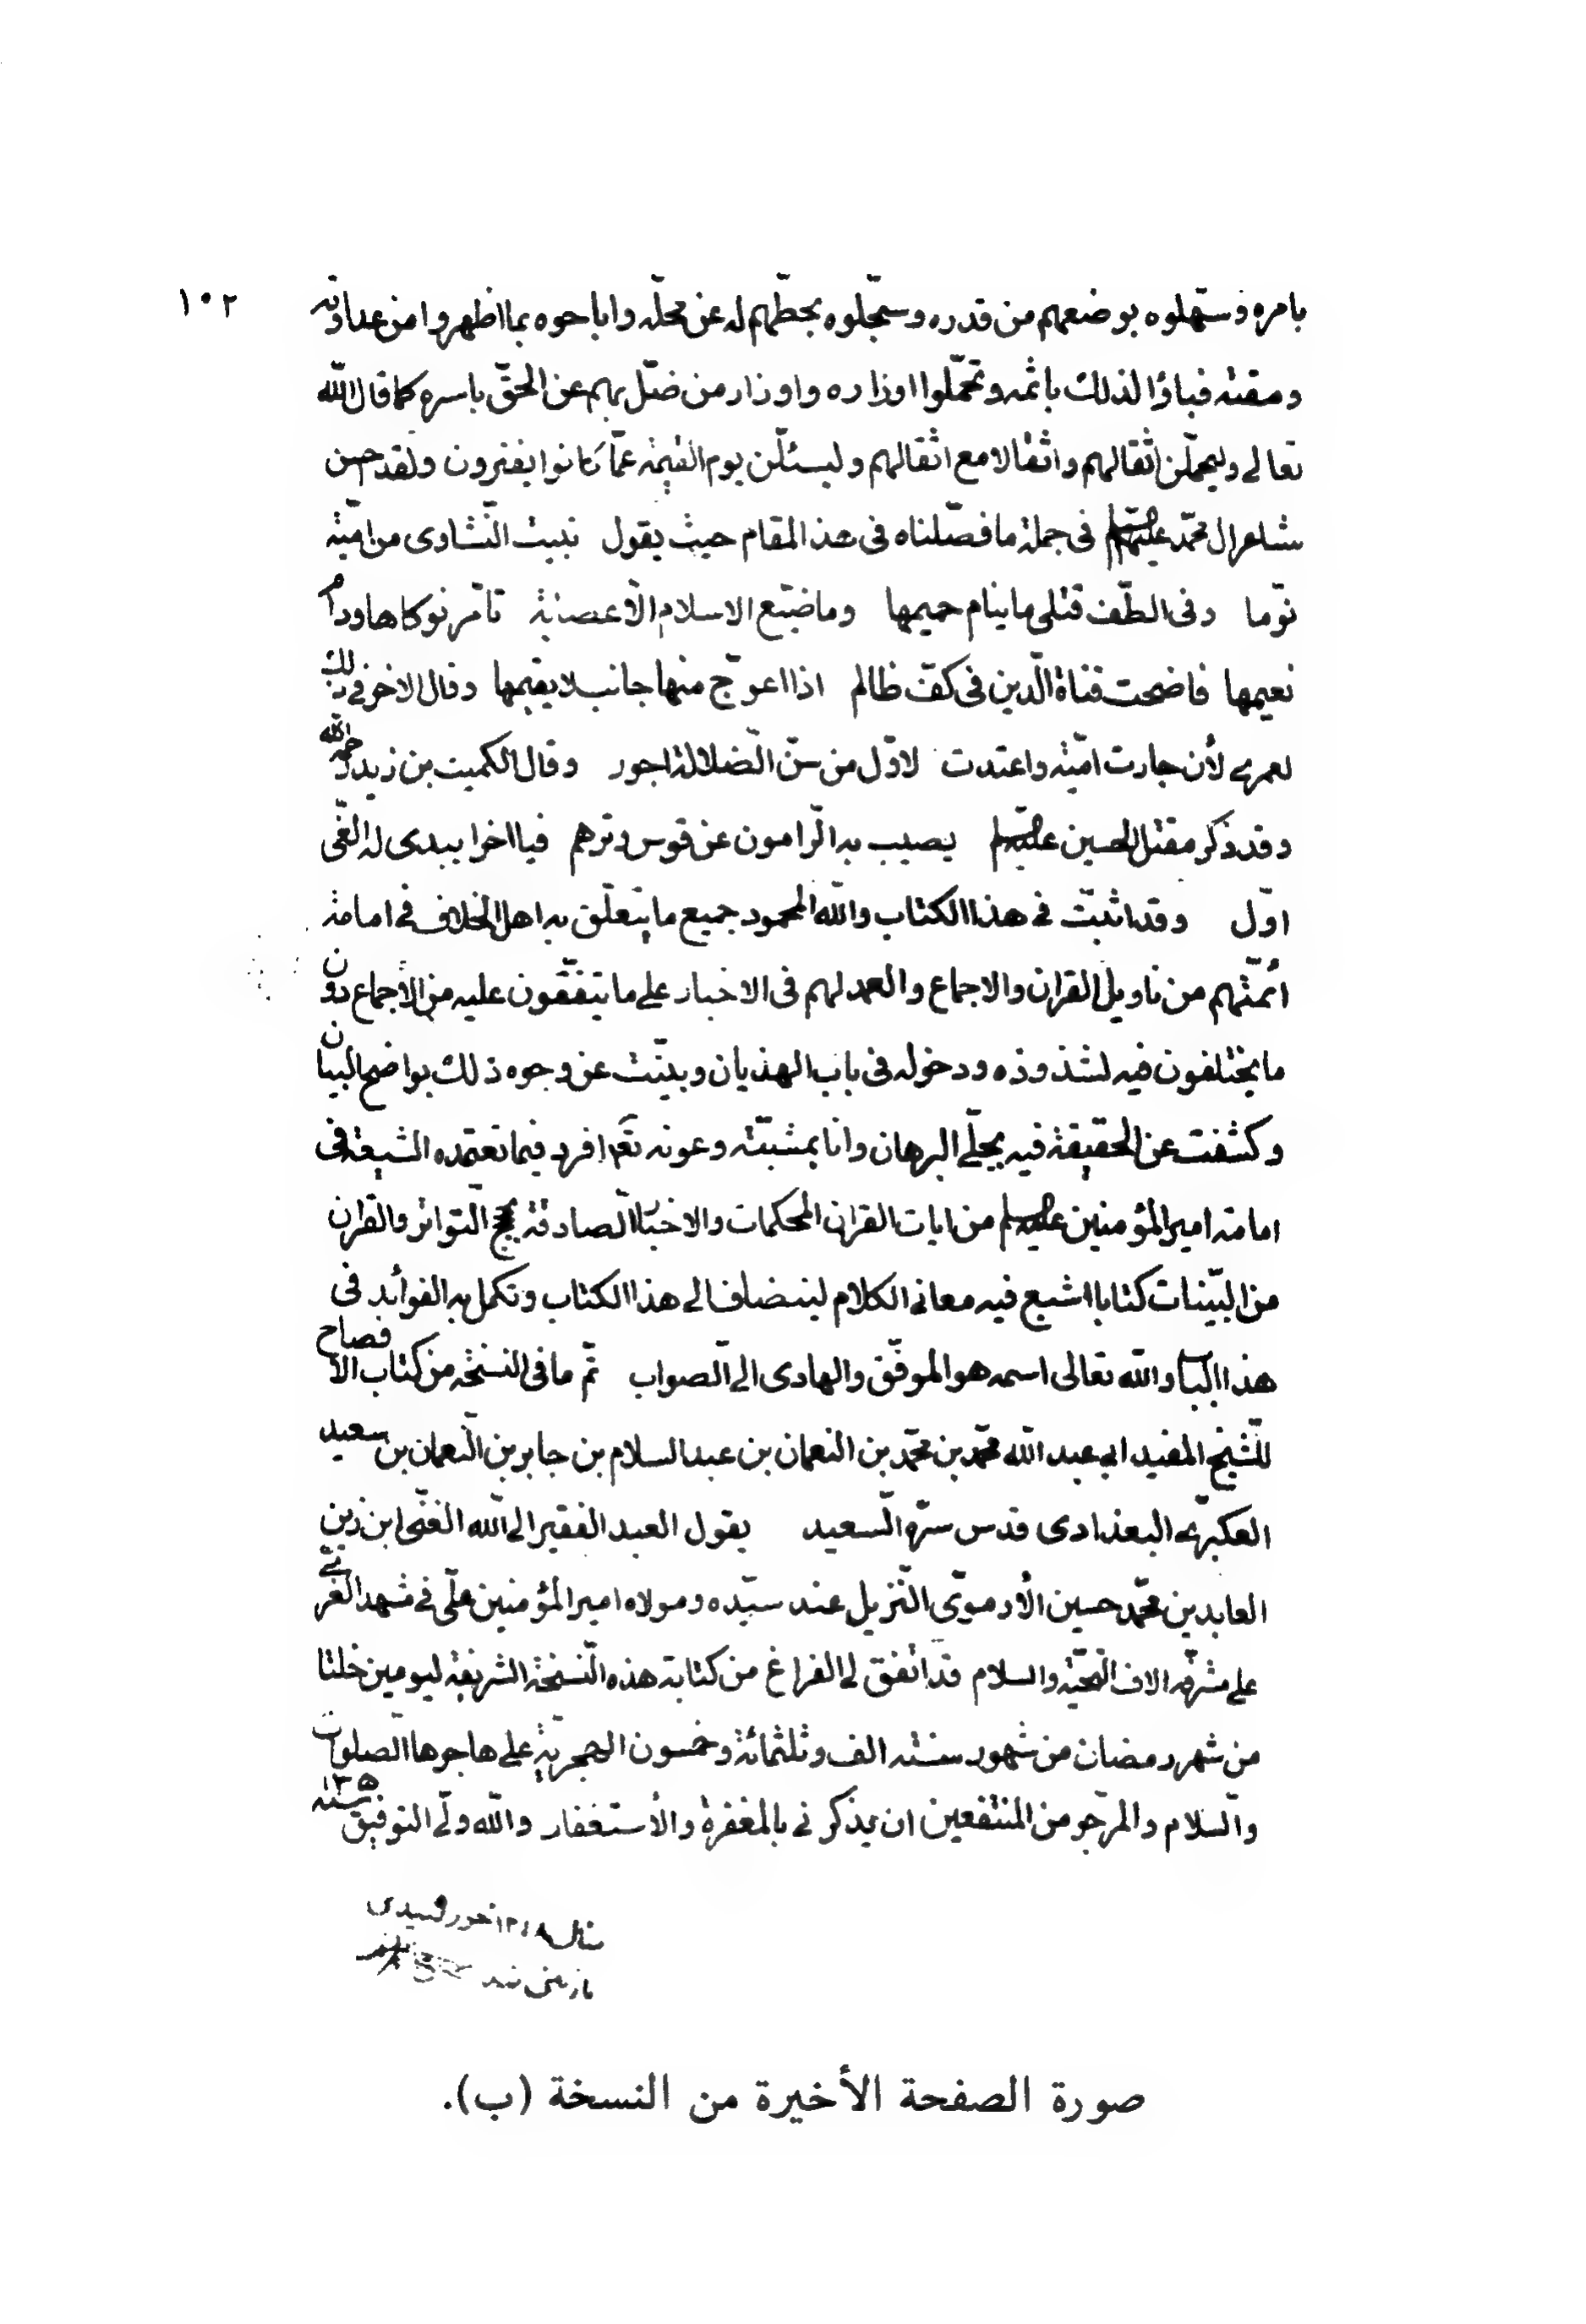 ١٠٢
بامره وسهّلوه بوضعهم من قدره وسجّلوه بحطّهم له عن محلّه واباحوه بما اظهروا من عداوته
ومقته فباؤا لذلك باثمه وتحمّلوا اوزاره واوزار من ضلّ بهم عن الحقّ باسره كما قال الله
تعالى وليحملن اثقالهم واثقالا مع اثقالهم وليسئلّن يوم القيمة عمّا كانوا يفترون ولقد احسن
شاعر ال محمّد عليهم السلام فى جملة ما فصّلناه فى هذا المقام حيث يقول تبيت النّشاوى من اميّة
نوّما وفى الطّف قتلى ما ينام حميمها وما ضيّع الاسلام الّا عصابة تامّر نوكاها ودام
نعيمها فاضحت قناة الدّين فى كفّ ظالم اذا اعوّج منها جانب لا يقيمها وقال الاخر فى ذلك
لعمرى لأن جارت اميّة واعتدت لاوّل من سنّ الضّلالة اجور وقال الكميت بن زيد رحمه الله
وقد ذكر مقتل الحسين عليه السلام يصيب به الرّامون عن قوس وترهم فيا اخرا يبدى له الغّى
اوّل وقد اثبتّ فى هذا الكتاب والله المحمود جميع ما يتعلّق به اهل الخلاف فى امامة
أئمّتهم من تاويل القران والاجماع والعمد لهم فى الاخبار على ما يتّفقون عليه من الاجماع دون
ما يختلفون فيه لشذوذه ودخوله فى باب الهذيان وبيّنت عن وجوه ذلك بواضح البيان
وكشفت عن الحقيقة فيه بجلّى البرهان وانا بمشيّته وعونه تعم افرد فيما تعتمده الشيعة فى
امامة امير المؤمنين عليه السلام من ايات القران المحكمات والاخبار الصادقة بحجج التّواتر والقران
من البيّنات كتابا اشبع فيه معانى الكلام لينضاف الى هذا الكتاب وتكمل به الفوائد فى
هذا الباب والله تعالى اسمه هو الموفّق والهادى الى الصواب تمّ ما فى النسخة من كتاب الافصاح
للشّيخ المفيد ابى عبد الله محمّد بن محمّد بن النعمان بن عبد السلام بن جابر بن النّعمان بن سعيد
العكبرّى البغدادى قدس سرّه السّعيد يقول العبد الفقير الى الله الغنّى ابن زين
العابدين محمّد حسين الأرموّى النّزيل عند سيّده ومولاه امير المؤمنين علّى فى مشهد الغرىّ
على مشرّفه الاف التّحيّة والسلام قد اتّفق لى الفراغ من كتابة هذه النّسخة الشريفة ليومين خلتا
من شهر رمضان من شهور سنة الف وثلثمائة وخمسون الهجريّة على هاجرها الصّلوات
والسّلام والمرّجو من المنتفعين ان يذكرنى بالمغفرة والأستغفار والله ولّى التوفيق سنة ١٣٥
سال
بازبينى شد
صورة الصفحة الأخيرة من النسخة (ب).